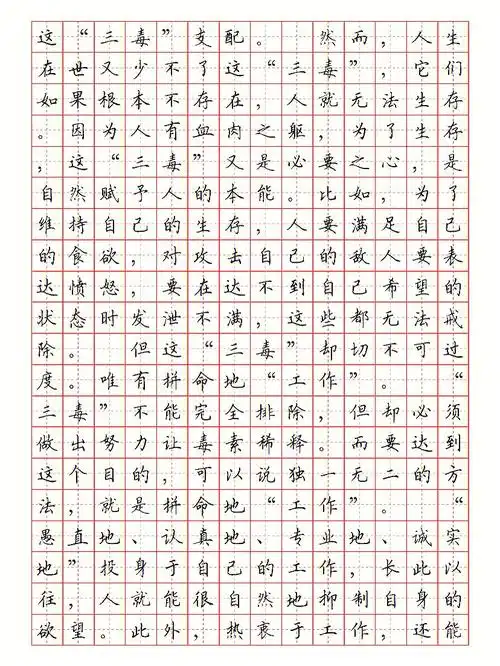 这“三毒”支配。 然而,人生
在世又少不了这“三毒”,它们
如果根本不存在,人就无法生存
。因为人有血肉之躯,为了生存
,这“三毒”又是必要之心,是
自然赋予人的本能。比如,为了
维持自己的生存,人要满足自己
的食欲,对攻击自己的敌人要表
达愤怒,要在达不到自己希望的
状态时发泄不满,这些都无法戒
除。 但这“三毒”却切不可过
度。唯有拼命地“工作”。 “
三毒”不能完全排除,但却必须
做出努力让毒素稀释。而要达到
这个目的,可以说独一无二的方
法,就是拼命地“工作”。 “
愚直地、认真地、专业地、诚实
地”投身于自己的工作,长此以
往,人就能很自然地抑制自身的
欲望。此外,热衷于工作,还能